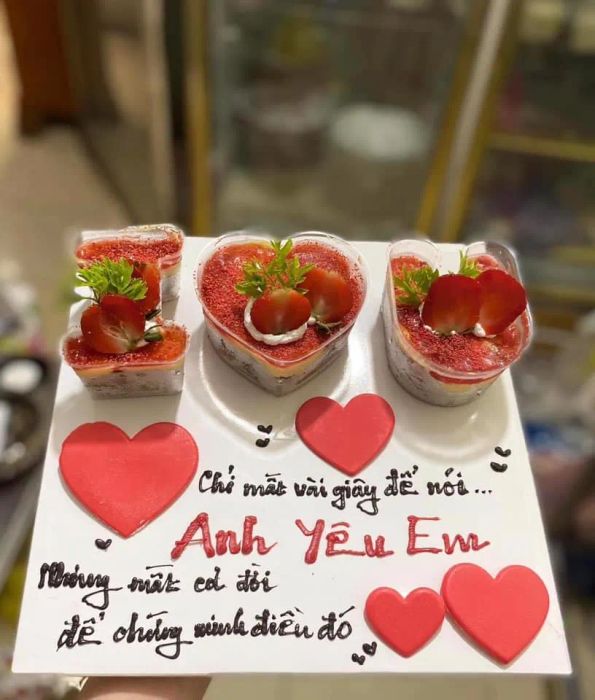 Chỉ mất vài giây để nói...
Anh Yêu Em
Nhưng mất cả đời
để chứng minh điều đó